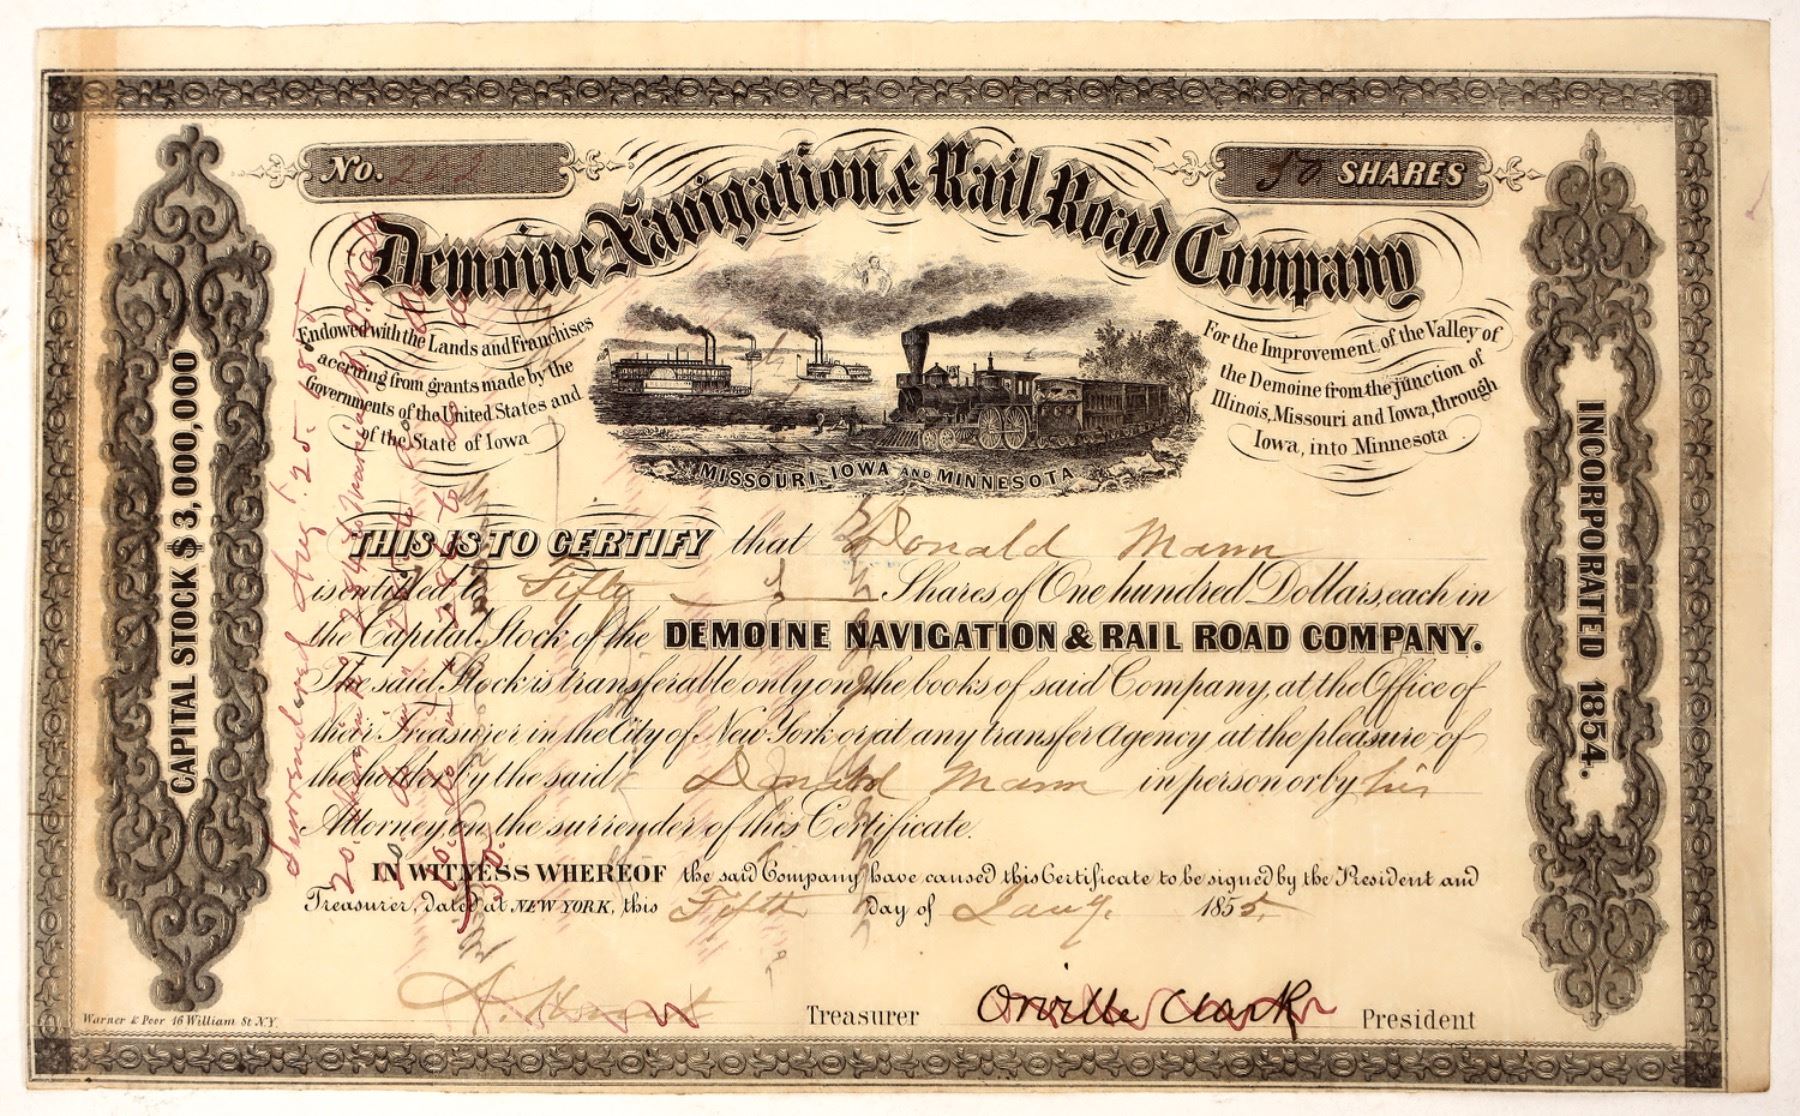 No. 202
50 SHARES
Demoine Navigation & Rail Road Company
Endowed with the Lands and Franchises
accruing from grants made by the
Governments of the United States and
of the State of Iowa
For the Improvement of the Valley of
the Demoine from the junction of
Illinois, Missouri and Iowa, through
Iowa, into Minnesota
MISSOURI, IOWA AND MINNESOTA
CAPITAL STOCK $3,000,000
INCORPORATED 1854.
THIS IS TO CERTIFY that Donald Mann
is entitled to Fifty Shares of One hundred Dollars, each in
the Capital Stock of the DEMOINE NAVIGATION & RAIL ROAD COMPANY.
The said Stock is transferable only on the books of said Company, at the Office of
their Treasurer in the City of New York or at any transfer Agency at the pleasure of
the holder by the said Donald Mann in person or by his
Attorney, on the surrender of this Certificate.
IN WITNESS WHEREOF the said Company have caused this Certificate to be signed by the President and
Treasurer, dated at NEW YORK, this Fifth day of Jany. 1855.
Treasurer
Orville Clark President
Warner & Peer 16 William St N.Y.
Surrendered Aug. 25. 1855